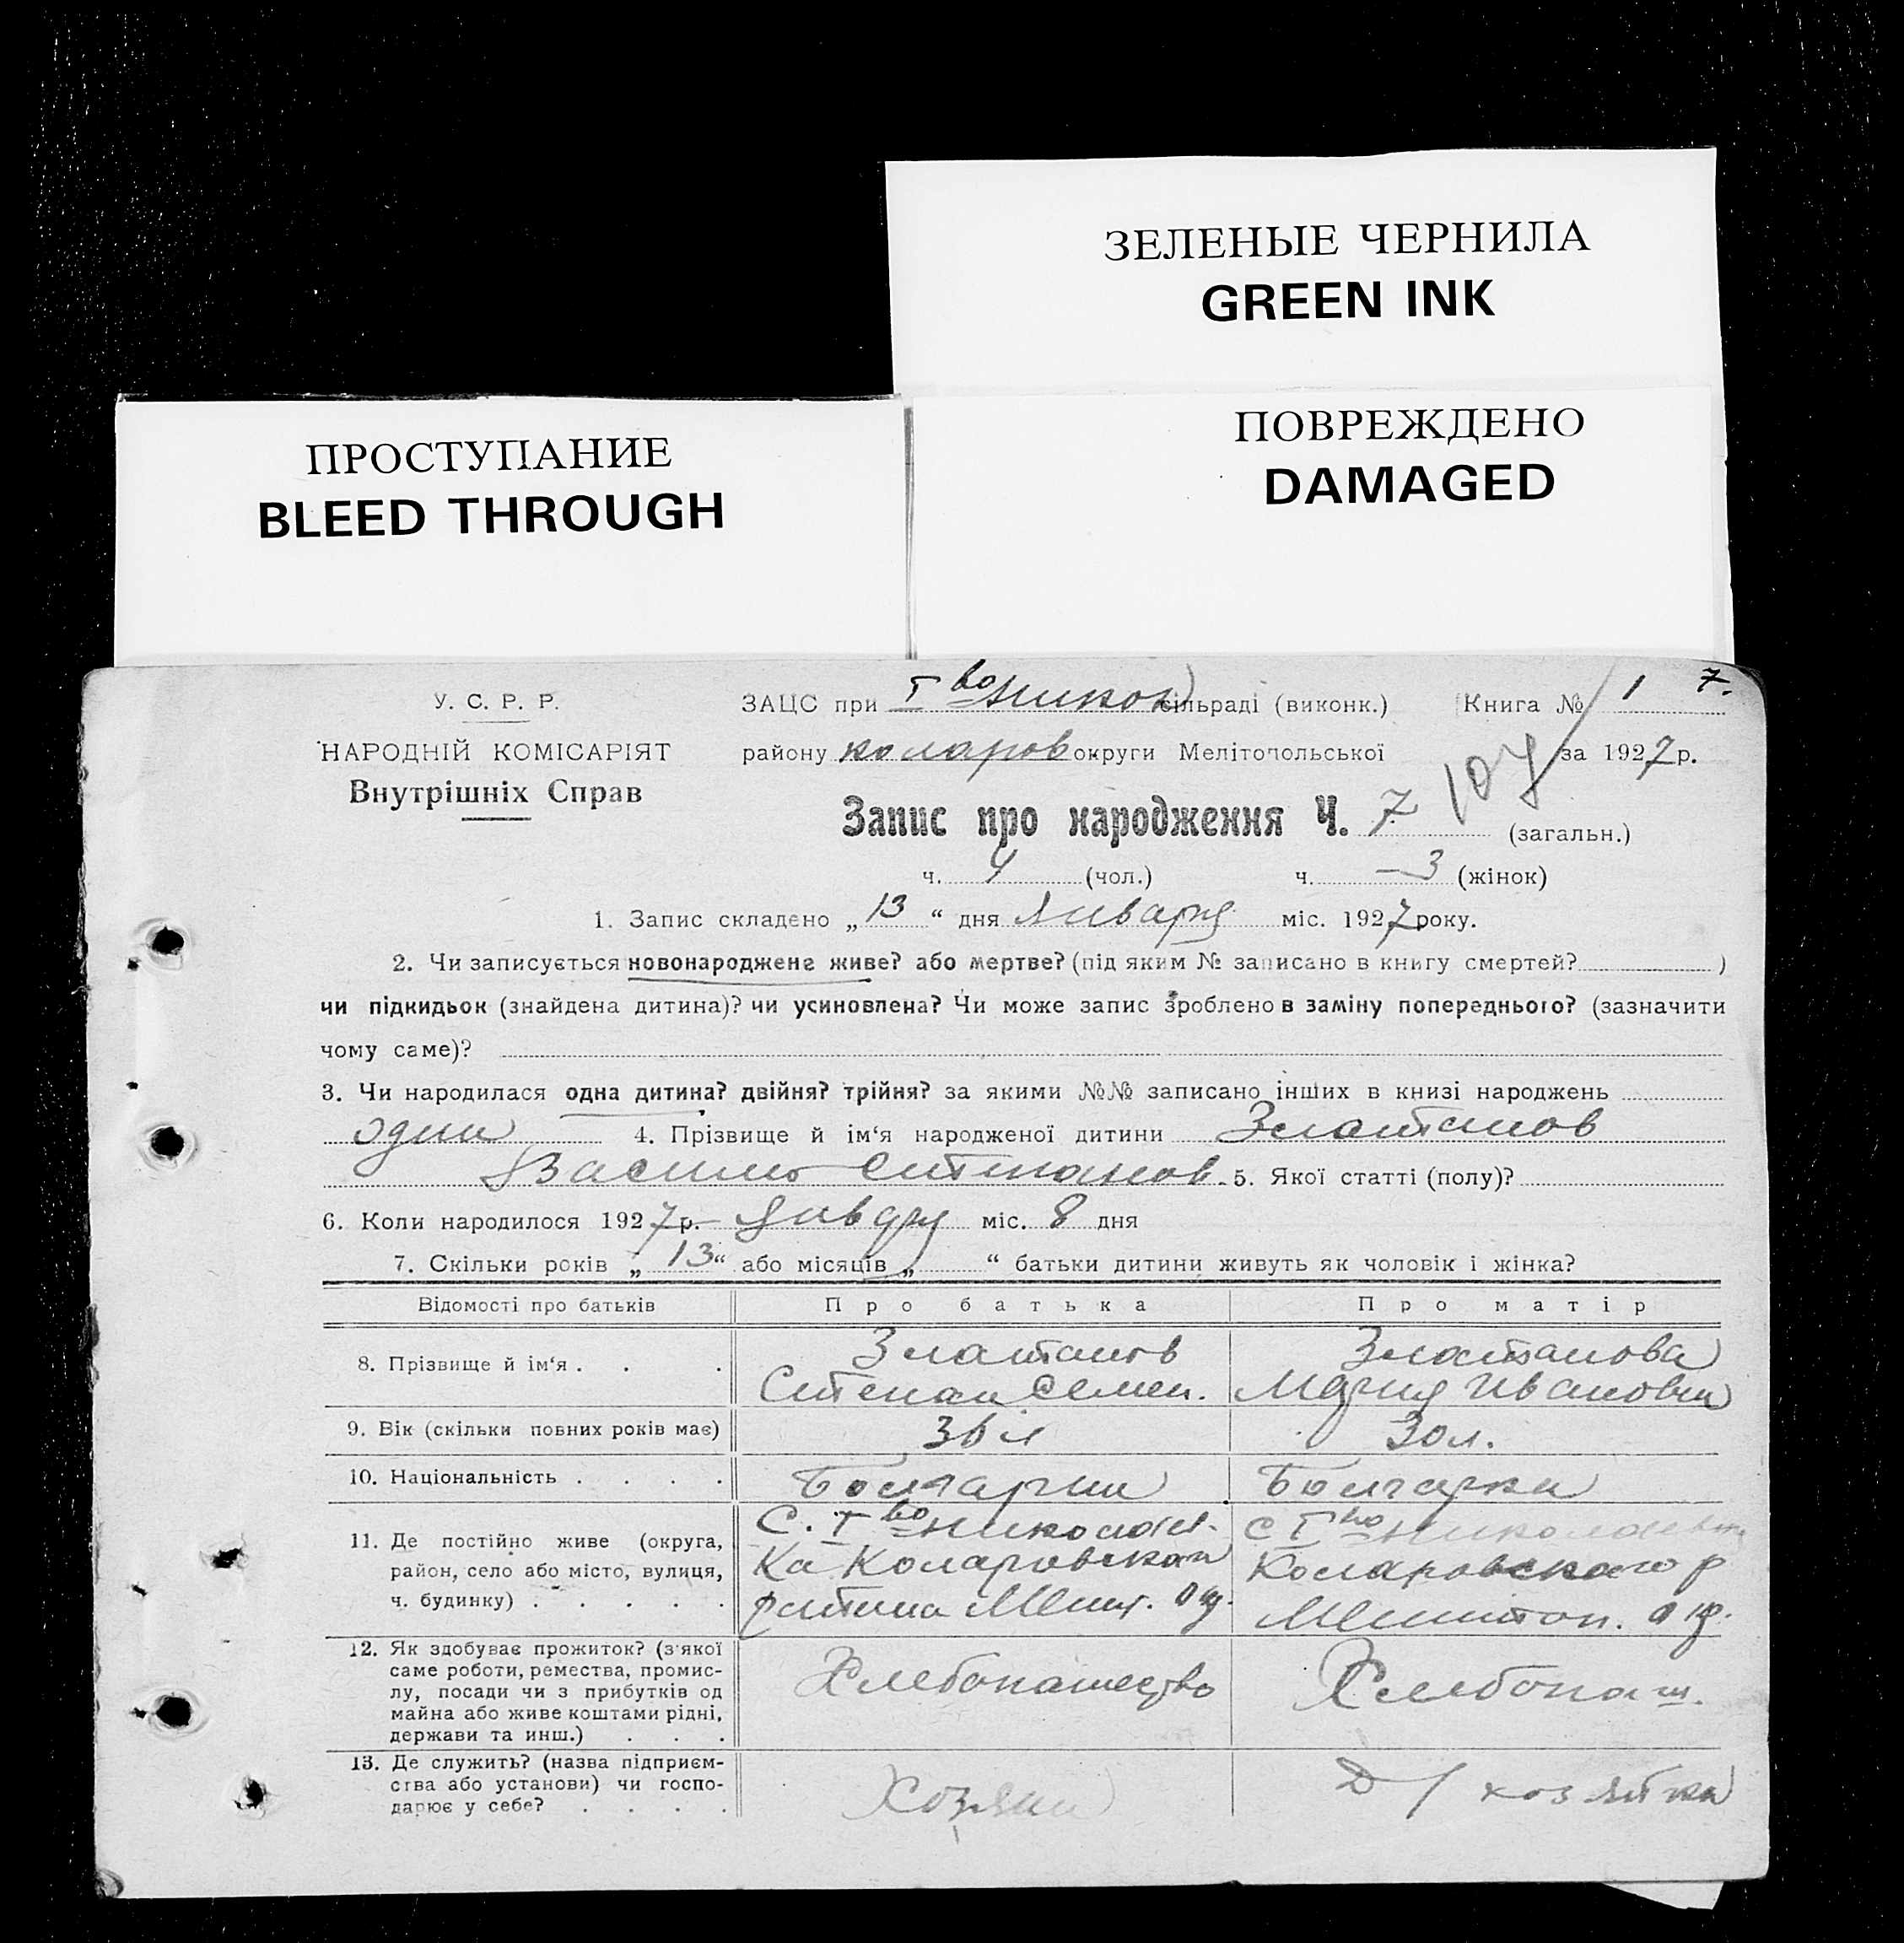 ЗЕЛЕНЫЕ ЧЕРНИЛА
GREEN INK
ПОВРЕЖДЕНО
DAMAGED
ПРОСТУПАНИЕ
BLEED THROUGH
У. С. Р. Р.
НАРОДНІЙ КОМІСАРІЯТ
Внутрішніх Справ
ЗАЦС при І во Никол сільраді (виконк.) Книга № 1 7.
району Коларов округи Мелітопольської за 1927 р.
107
Запис про народження Ч. 7 (загальн.)
ч. 4 (чол.) ч. – 3 (жінок)
1. Запис складено „ 13 “ дня Января міс. 1927 року.
2. Чи записується новонароджене живе? або мертве? (під яким № записано в книгу смертей? )
чи підкидьок (знайдена дитина)? чи усиновлена? Чи може запис зроблено в заміну попереднього? (зазначити
чому саме)?
3. Чи народилася одна дитина? двійня? трійня? за якими №№ записано інших в книзі народжень
один 4. Прізвище й ім‘я народженої дитини Златанов
Василь Степанов. 5. Якої статті (полу)?
6. Коли народилося 1927 р. Январу міс. 8 дня
7. Скільки років „ 13 “ або місяців „ “ батьки дитини живуть як чоловік і жінка?
Відомості про батьків Про батька Про матір
8. Прізвище й ім‘я . . . Златанов Златанова
Степан Семен. Мария Ивановна
9. Вік (скільки повних років має) 36 л 30 л.
10. Національність . . . . Болгарин Болгарка
11. Де постійно живе (округа, район, село або місто, вулиця, ч. будинку) . . . . .
С. І во Николаев-
ка Коларовская
Мелит. окр.
с І во Николаевк
Коларовского р
Мелитоп. окр.
12. Як здобуває прожиток? (з якої саме роботи, ремества, промислу, посади чи з прибутків од майна або живе коштами рідні, держави та инш.) . . .
Хлебопашество Хлебопаш.
13. Де служить? (назва підприємства або установи) чи господарює у себе? . . . .
Хозяин Д/хозяйка